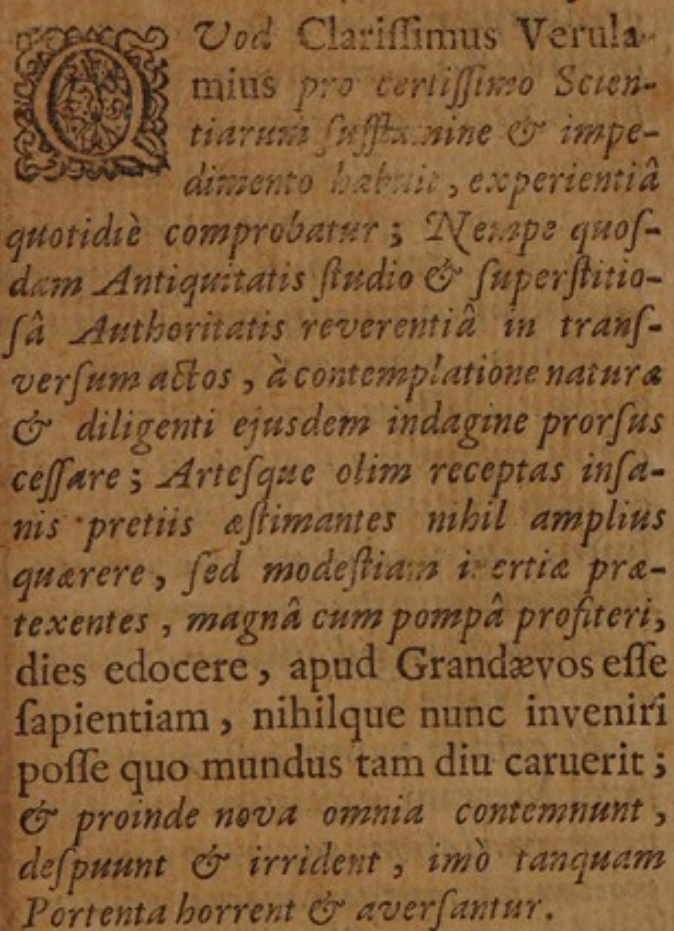 QVod Clariſſimus Verula-
mius pro certiſſimo Scien-
tiarum ſufflamine & impe-
dimento habuit, experientiâ
quotidiè comprobatur; Nempe quoſ-
dam Antiquitatis ſtudio & ſuperſtitio-
ſâ Authoritatis reverentiâ in tranſ-
verſum actos, à contemplatione naturæ
& diligenti ejusdem indagine prorſus
ceſſare; Arteſque olim receptas inſa-
nis pretiis æſtimantes nihil amplius
quærere, ſed modeſtiam inertiæ præ-
texentes, magnâ cum pompâ profiteri,
dies edocere, apud Grandævos eſſe
ſapientiam, nihilque nunc inveniri
poſſe quo mundus tam diu caruerit;
& proinde nova omnia contemnunt,
deſpuunt & irrident, imò tanquam
Portenta horrent & averſantur.